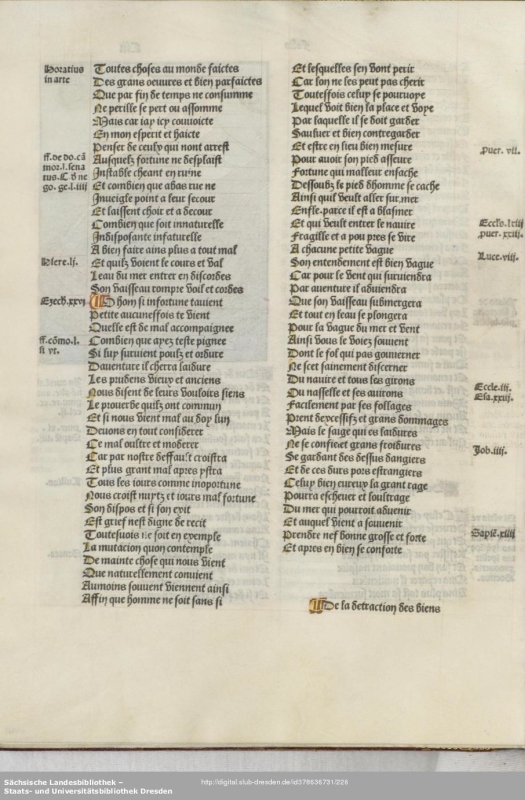 Horatius
in arte
Toutes choses au monde faictes
Des grans oeuures et bien parfaictes
Que par fin de temps ne consumme
Ne perisse se pert ou assomme
Mais car iay icy conuoicte
En mon esperit et haicte
Penser de ceulx qui nont arrest
ff. de do. cā
mor. l. sena
tus. C de ne
go. ge. l. iiij
Ausquelz fortune ne desplaist
Instable cheant en ruine
Et combien que abas rue ne
Inueigle point a leur secour
Et laissent choir et a decour
Combien que soit innaturelle
Indisposante infaturelle
A bien faire ains plus a tout mal
Hiere. lj.
Et quilz voient le cours et val
Leau du mer entrer en discordes
Son vaisseau rompre voil et cordes
Ezech. xxvj
O hom si infortune tauient
Petite aucuneffois te vient
Quelle est de mal accompaignee
ff. cōmo. l.
si vt.
Combien que ayez teste pignee
Si luy suruient poulx et ordure
Dauenture il cherra laidure
Les prudens vieux et anciens
Nous disent de leurs vouloirs siens
Le prouerbe quilz ont commun
Et si nous vient mal au hoy lun
Deuons en tout considerer
Ce mal oultre et moderer
Car par nostre deffault croistra
Et plus grant mal apres ystra
Tous les iours comme inoportune
Nous croist nuytz et iours mal fortune
Son dispos et si son exit
Est grief nest digne de recit
Touteffois ne soit en exemple
La mutacion quon contemple
De mainte chose qui nous vient
Que naturellement conuient
Aumoins souuent viennent ainsi
Affin que homme ne soit sans si
Et lesquelles sen vont perir
Car lon ne les peut pas cherir
Touteffois celuy se pouruoye
Lequel voit bien la place et voye
Par laquelle il se doit garder
Sauluer et bien contregarder
Et estre en lieu bien mesure
Puer. vii.
Pour auoir son pied asseure
Fortune qui malleur ensache
Dessoubz le pied dhomme se cache
Ainsi quil veult aller sur mer
Enfle. parce il est a blasmer
Eccls. lxiij
puer. xxiij.
Et qui veult entrer le nauire
Fragille et a pou pres se vire
A chacune petite vague
Luce. viij.
Son entendement est bien vague
Car pour le vent qui suruiendra
Par auenture il aduiendra
Que son vaisseau submergera
Et tout en leau se plongera
Pour la vague du mer et vent
Ainsi vous le voiez souuent
Dont le fol qui pas gouuerner
Ne scet sainement discerner
Du nauire et tous les girons
Eccle. iij.
Esa. xxij.
Du nasselle et ses auirons
Facilement par ses follages
Prent dexcessifz et grans dommages
Mais le saige qui es laidures
Ne se confie et grans froidures
Job. iiij.
Se gardant des dessus dangiers
Et de ces durs pors estrangiers
Celuy bien eureux la grant rage
Pourra escheuer et loultrage
Du mer qui pourroit aduenir
Et auquel vient a souuenir
Sapiē. xiiij
Prendre nef bonne grosse et forte
Et apres en bien se conforte
De la detraction des biens
Sächsische Landesbibliothek –
Staats- und Universitätsbibliothek Dresden
http://digital.slub-dresden.de/id378636731/226